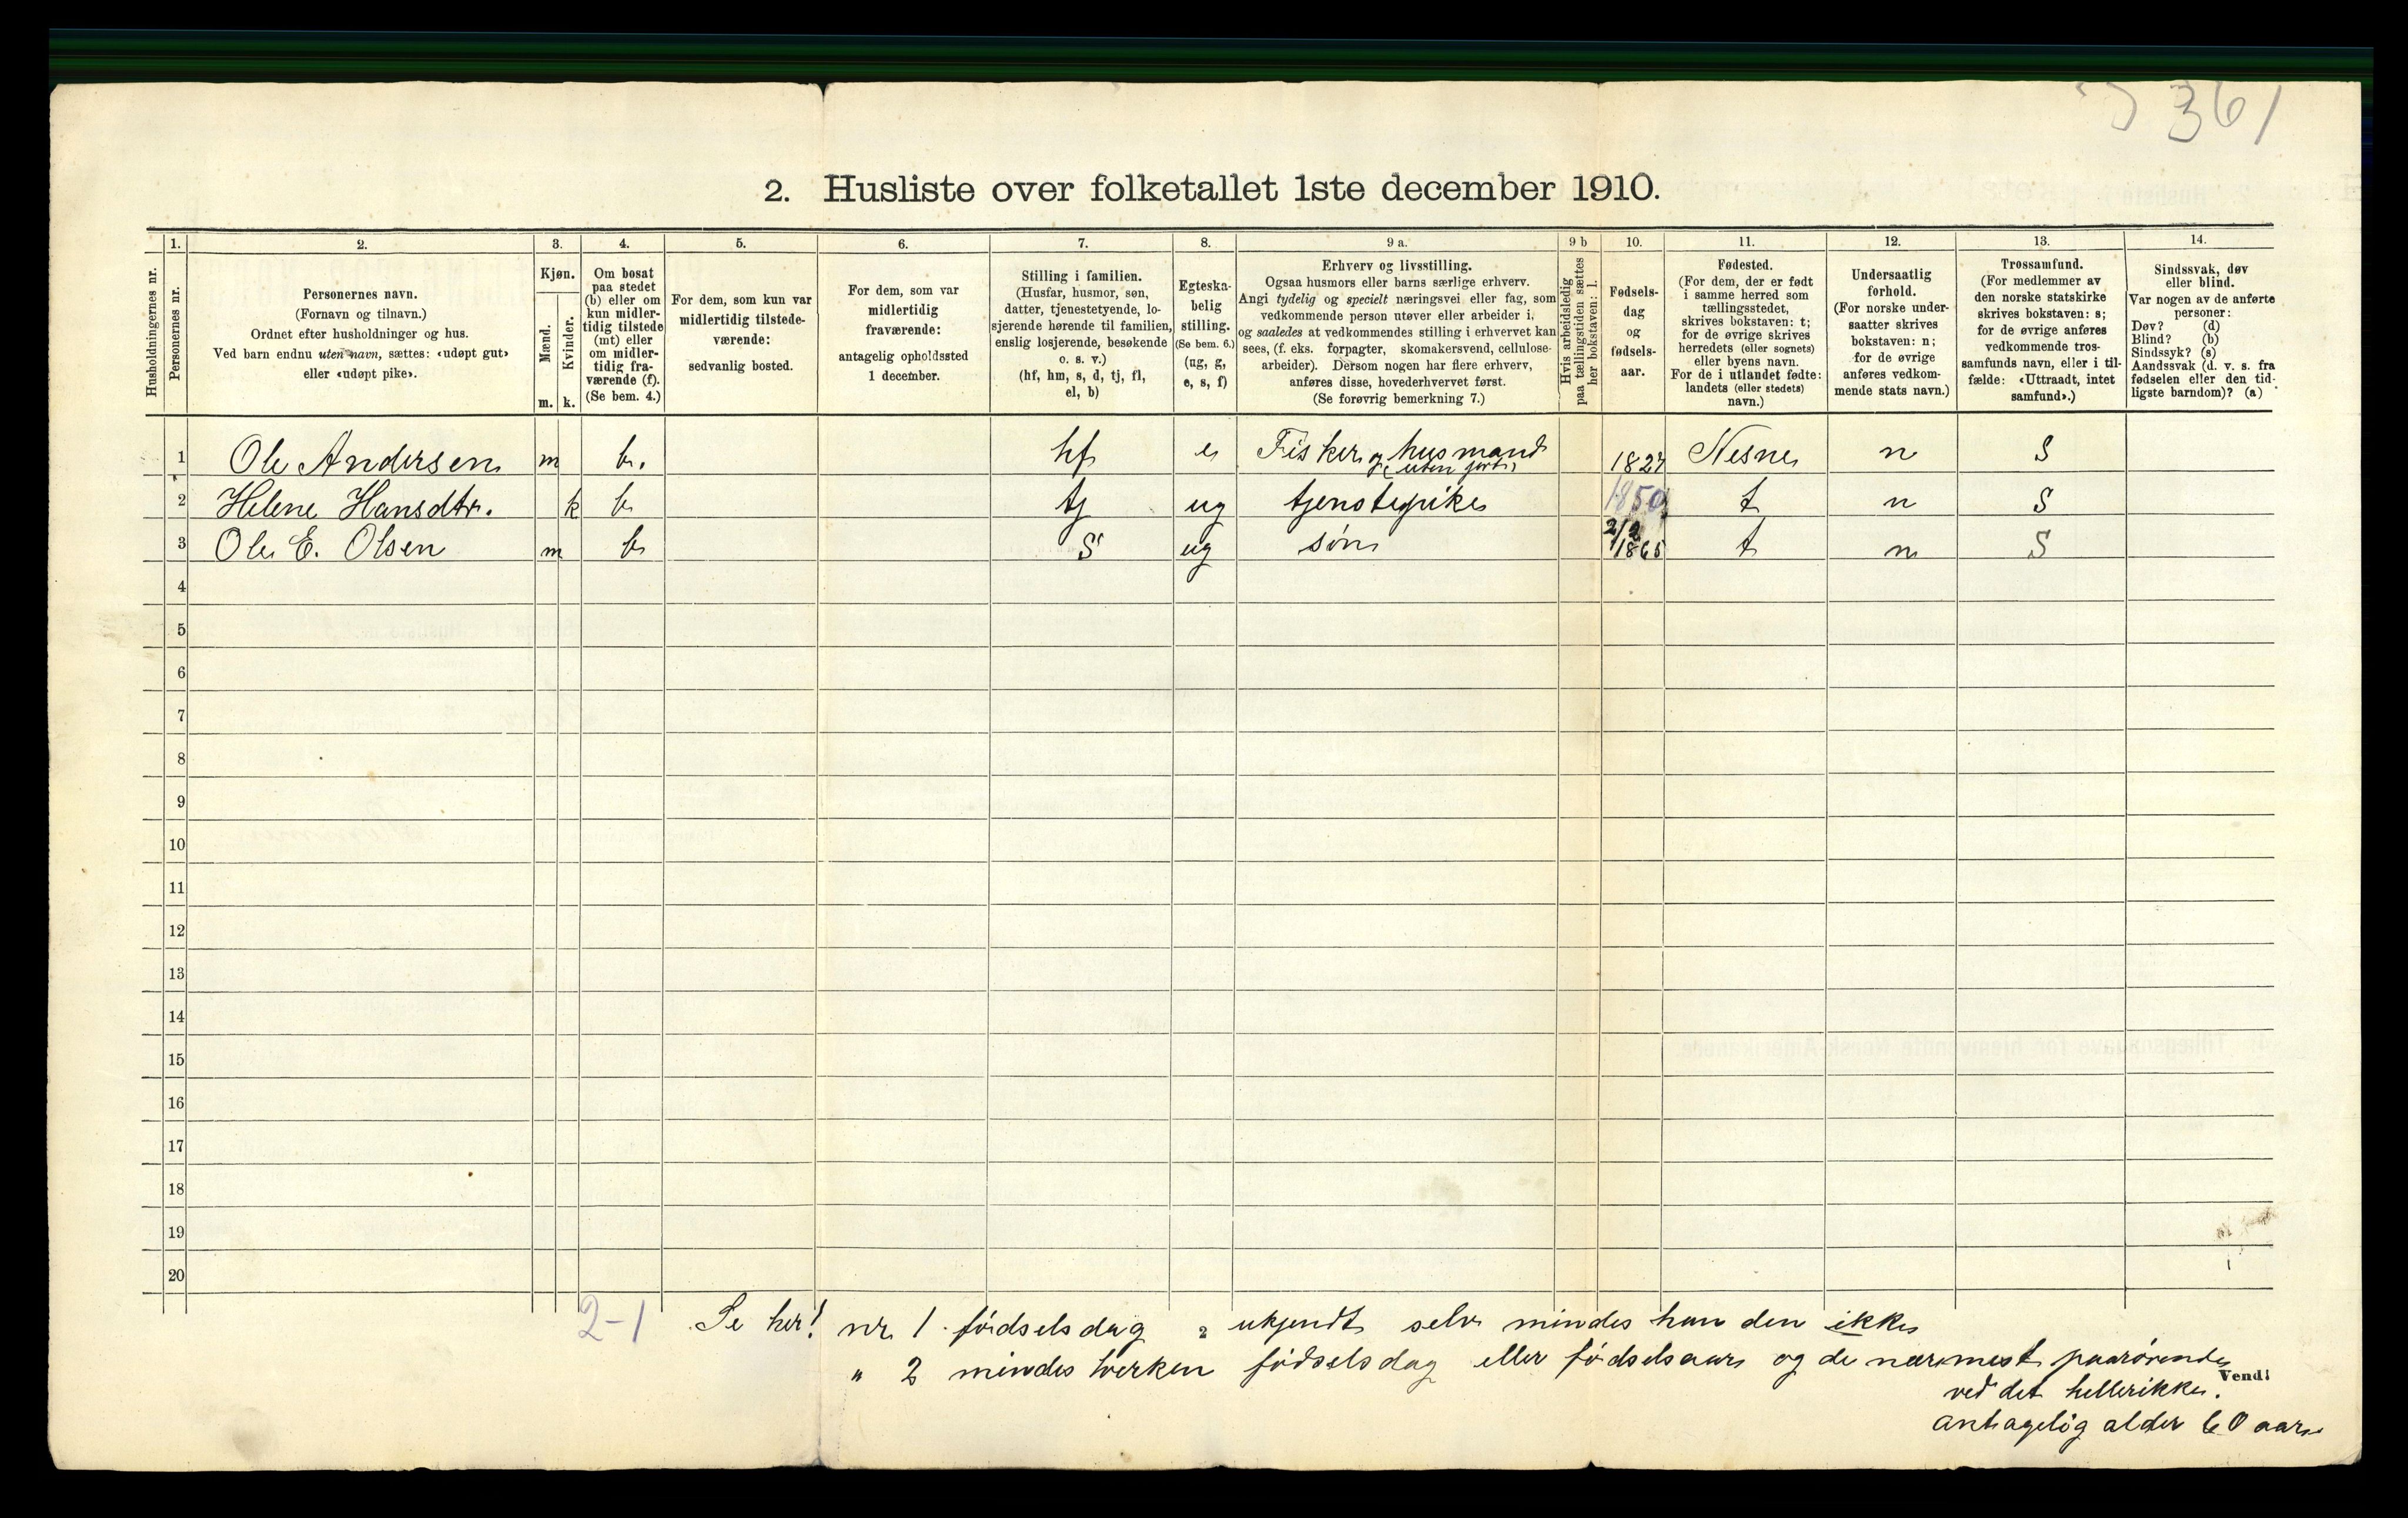 361
2. Husliste over folketallet 1ste december 1910.
Husholdningernes nr.
1.
Personernes nr.
2.
Personernes navn.
(Fornavn og tilnavn.)
Ordnet efter husholdninger og hus.
Ved barn endnu uten navn, sættes: «udøpt gut»
eller «udøpt pike».
3.
Kjøn.
Mænd.
Kvinder.
m. k.
4.
Om bosat
paa stedet
(b) eller om
kun midler-
tidig tilstede
(mt) eller
om midler-
tidig fra-
værende (f).
(Se bem. 4.)
5.
For dem, som kun var
midlertidig tilstede-
værende:
sedvanlig bosted.
6.
For dem, som var
midlertidig
fraværende:
antagelig opholdssted
1 december.
7.
Stilling i familien.
(Husfar, husmor, søn,
datter, tjenestetyende, lo-
sjerende hørende til familien,
enslig losjerende, besøkende
o. s. v.)
(hf, hm, s, d, tj, fl,
el, b)
8.
Egteska-
belig
stilling.
(Se bem. 6.)
(ug, g,
e, s, f)
9 a.
Erhverv og livsstilling.
Ogsaa husmors eller barns særlige erhverv.
Angi tydelig og specielt næringsvei eller fag, som
vedkommende person utøver eller arbeider i,
og saaledes at vedkommendes stilling i erhvervet kan
sees, (f. eks. forpagter, skomakersvend, cellulose-
arbeider). Dersom nogen har flere erhverv,
anføres disse, hovederhvervet først.
(Se forøvrig bemerkning 7.)
9 b
Hvis arbeidsledig
paa tællingstiden sættes
her bokstaven: l.
10.
Fødsels-
dag
og
fødsels-
aar.
11.
Fødested.
(For dem, der er født
i samme herred som
tællingsstedet,
skrives bokstaven: t;
for de øvrige skrives
herredets (eller sognets)
eller byens navn.
For de i utlandet fødte:
landets (eller stedets)
navn.)
12.
Undersaatlig
forhold.
(For norske under-
saatter skrives
bokstaven: n;
for de øvrige
anføres vedkom-
mende stats navn.)
13.
Trossamfund.
(For medlemmer av
den norske statskirke
skrives bokstaven: s;
for de øvrige anføres
vedkommende tros-
samfunds navn, eller i til-
fælde: «Uttraadt, intet
samfund».)
14.
Sindssvak, døv
eller blind.
Var nogen av de anførte
personer:
Døv? (d)
Blind? (b)
Sindssyk? (s)
Aandssvak (d. v. s. fra
fødselen eller den tid-
ligste barndom)? (a)
1 Ole Andersen m b. hf e Fisker og husmand (uten jord) 1827 Nesne n S
2 Helene Hansdtr. k b tj ug tjenstepike 1850 t n S
3 Ole E. Olsen m b S ug søn 1865 t n S
4
5
6
7
8
9
10
11
12
13
14
15
16
17
18
19
20
2-1 Se her! nr. 1 fødselsdag ukjendt selv mindes han den ikke
" 2 mindes hverken fødselsdag eller fødselsaar og de nærmest paarørende
Vend!
ved det hellerikke.
antagelig alder 60 aar